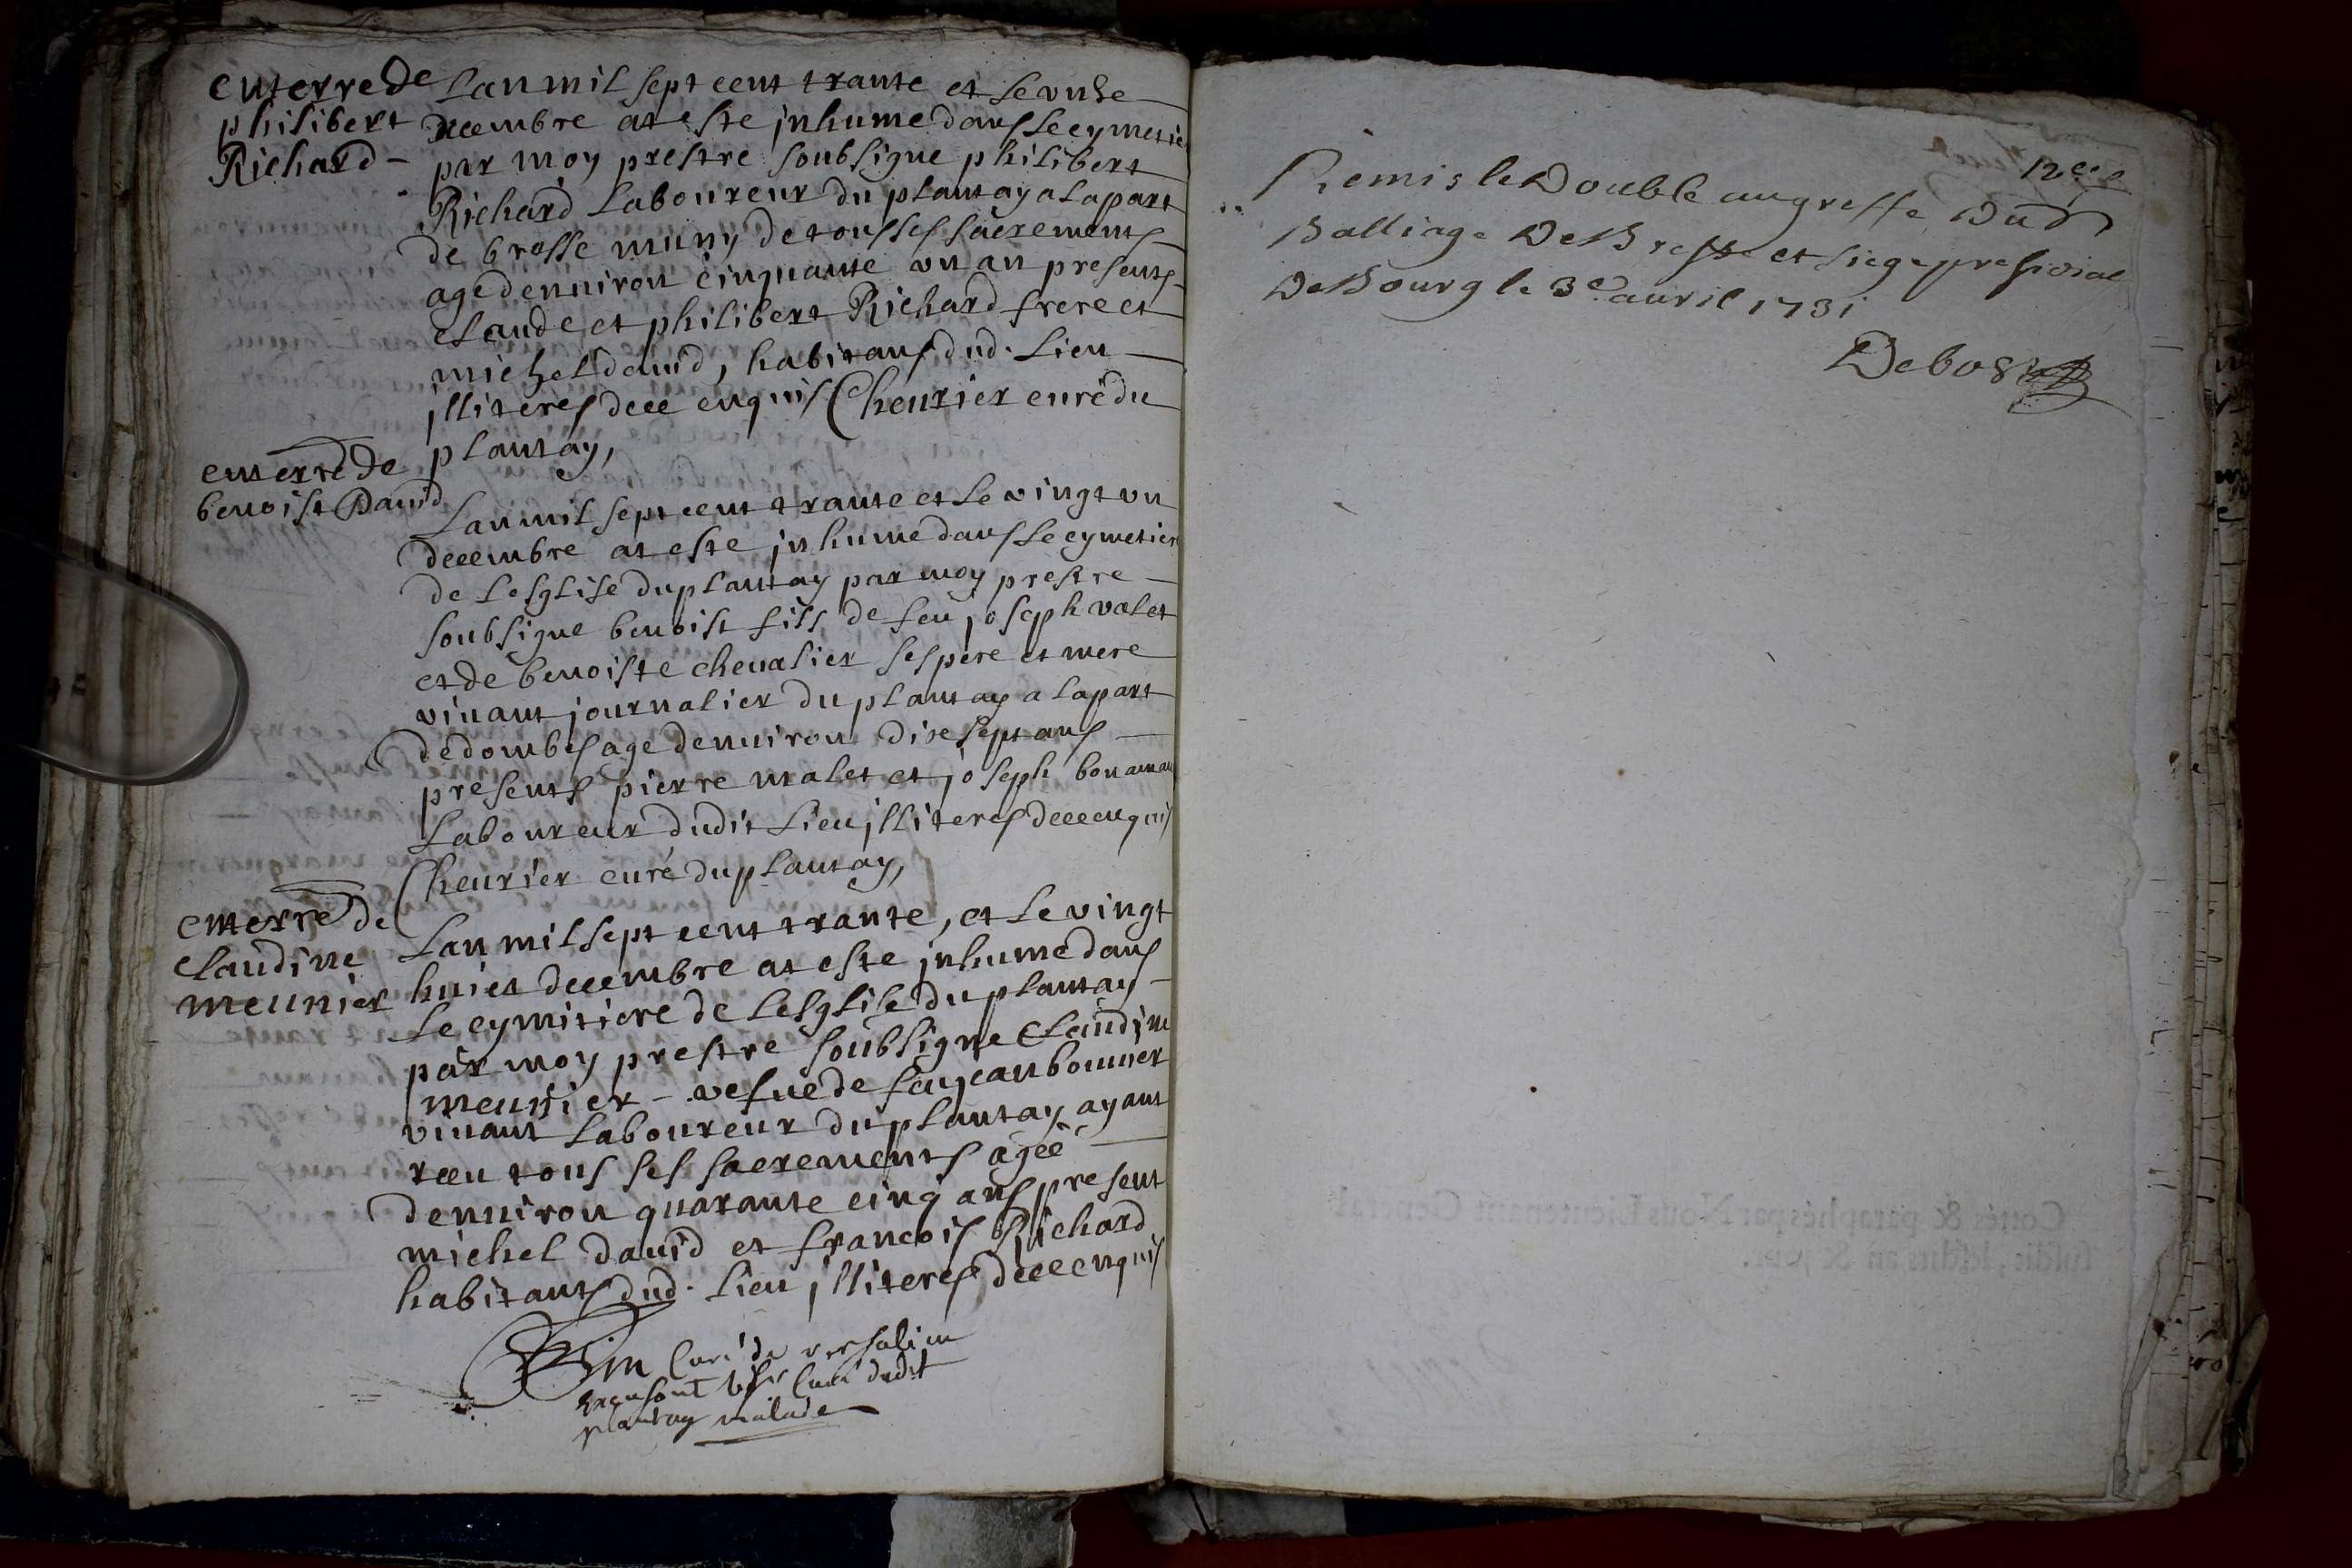 enterre de
philibert
Richard -
Lan mil sept cent trante et le unze
decembre at este inhume dans le cymetie
par moy prestre soubsigne philibert
Richard laboureur du plantay a la part
de bresse muny de tous ses sacrements
age denuiron cinquante un an presents
claude et philibert Richard frere et
michel dauid, habitans dud. lieu
illiteres de ce enquis Cheurier curé du
plantay,
enterré de
benoist Dauid
Lan mil sept cent trante et le vingt un
decembre at este inhume dans le cymetier
de lesglise du plantay par moy prestre
soubsigne benoist fils de feu joseph valet
et de benoiste cheualier ses pere et mere
viuant journalier du plantay a la part
de dombes age denuiron dix sept ans
presents pierre malet et joseph
laboureur dudit lieu illiteres de ce enquis
Cheurier curé du plantay,
enterré de
claudine
meunier
Lan mil sept cent trante, et le vingt
huict decembre at este inhume dans
le cymitiere de lesglise du plantay
par moy prestre soubsigne claudine
meunier - vefue de feu jean bonner
viuant laboureur du plantay ayant
receu tous ses sacrements agée
denuiron quarante cinq ans present
michel dauid et francois Richard
habitants dud. lieu illiteres de ce enquis
curé de versalieu
curé dudit
plantay malade
12ece
Remis le Double au greffe Dud
Balliage De Bresse et siege presidial
De Bourg le 3e auril 1731
Cottés & paraphés par Nous Lieutenant General
susdit, lesdits an & jour.